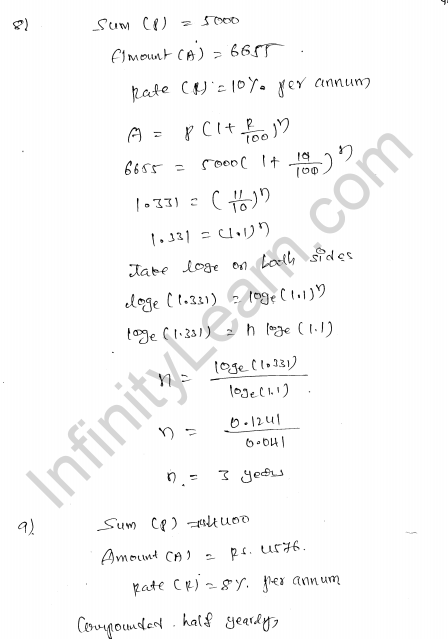 8) Sum (P) = 5000
Amount (A) = 6655.
Rate (R) = 10% per annum
A = P (1 + R/100)^n
6655 = 5000 (1 + 10/100)^n
1.331 = (11/10)^n
1.331 = (1.1)^n
Take loge on both sides
loge (1.331) = loge (1.1)^n
loge (1.331) = n loge (1.1)
n = loge (1.331) / loge (1.1) .
n = 0.1241 / 0.041
n = 3 years
9) Sum (P) =
Amount (A) = Rs. 4576.
Rate (R) = 8% per annum
Compounded half yearly,
InfinityLearn.com